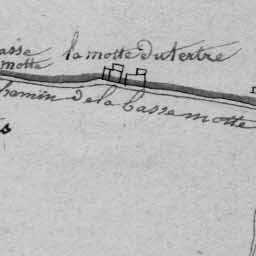 asse
motte
la motte du tertre
chemin de la basse motte
s